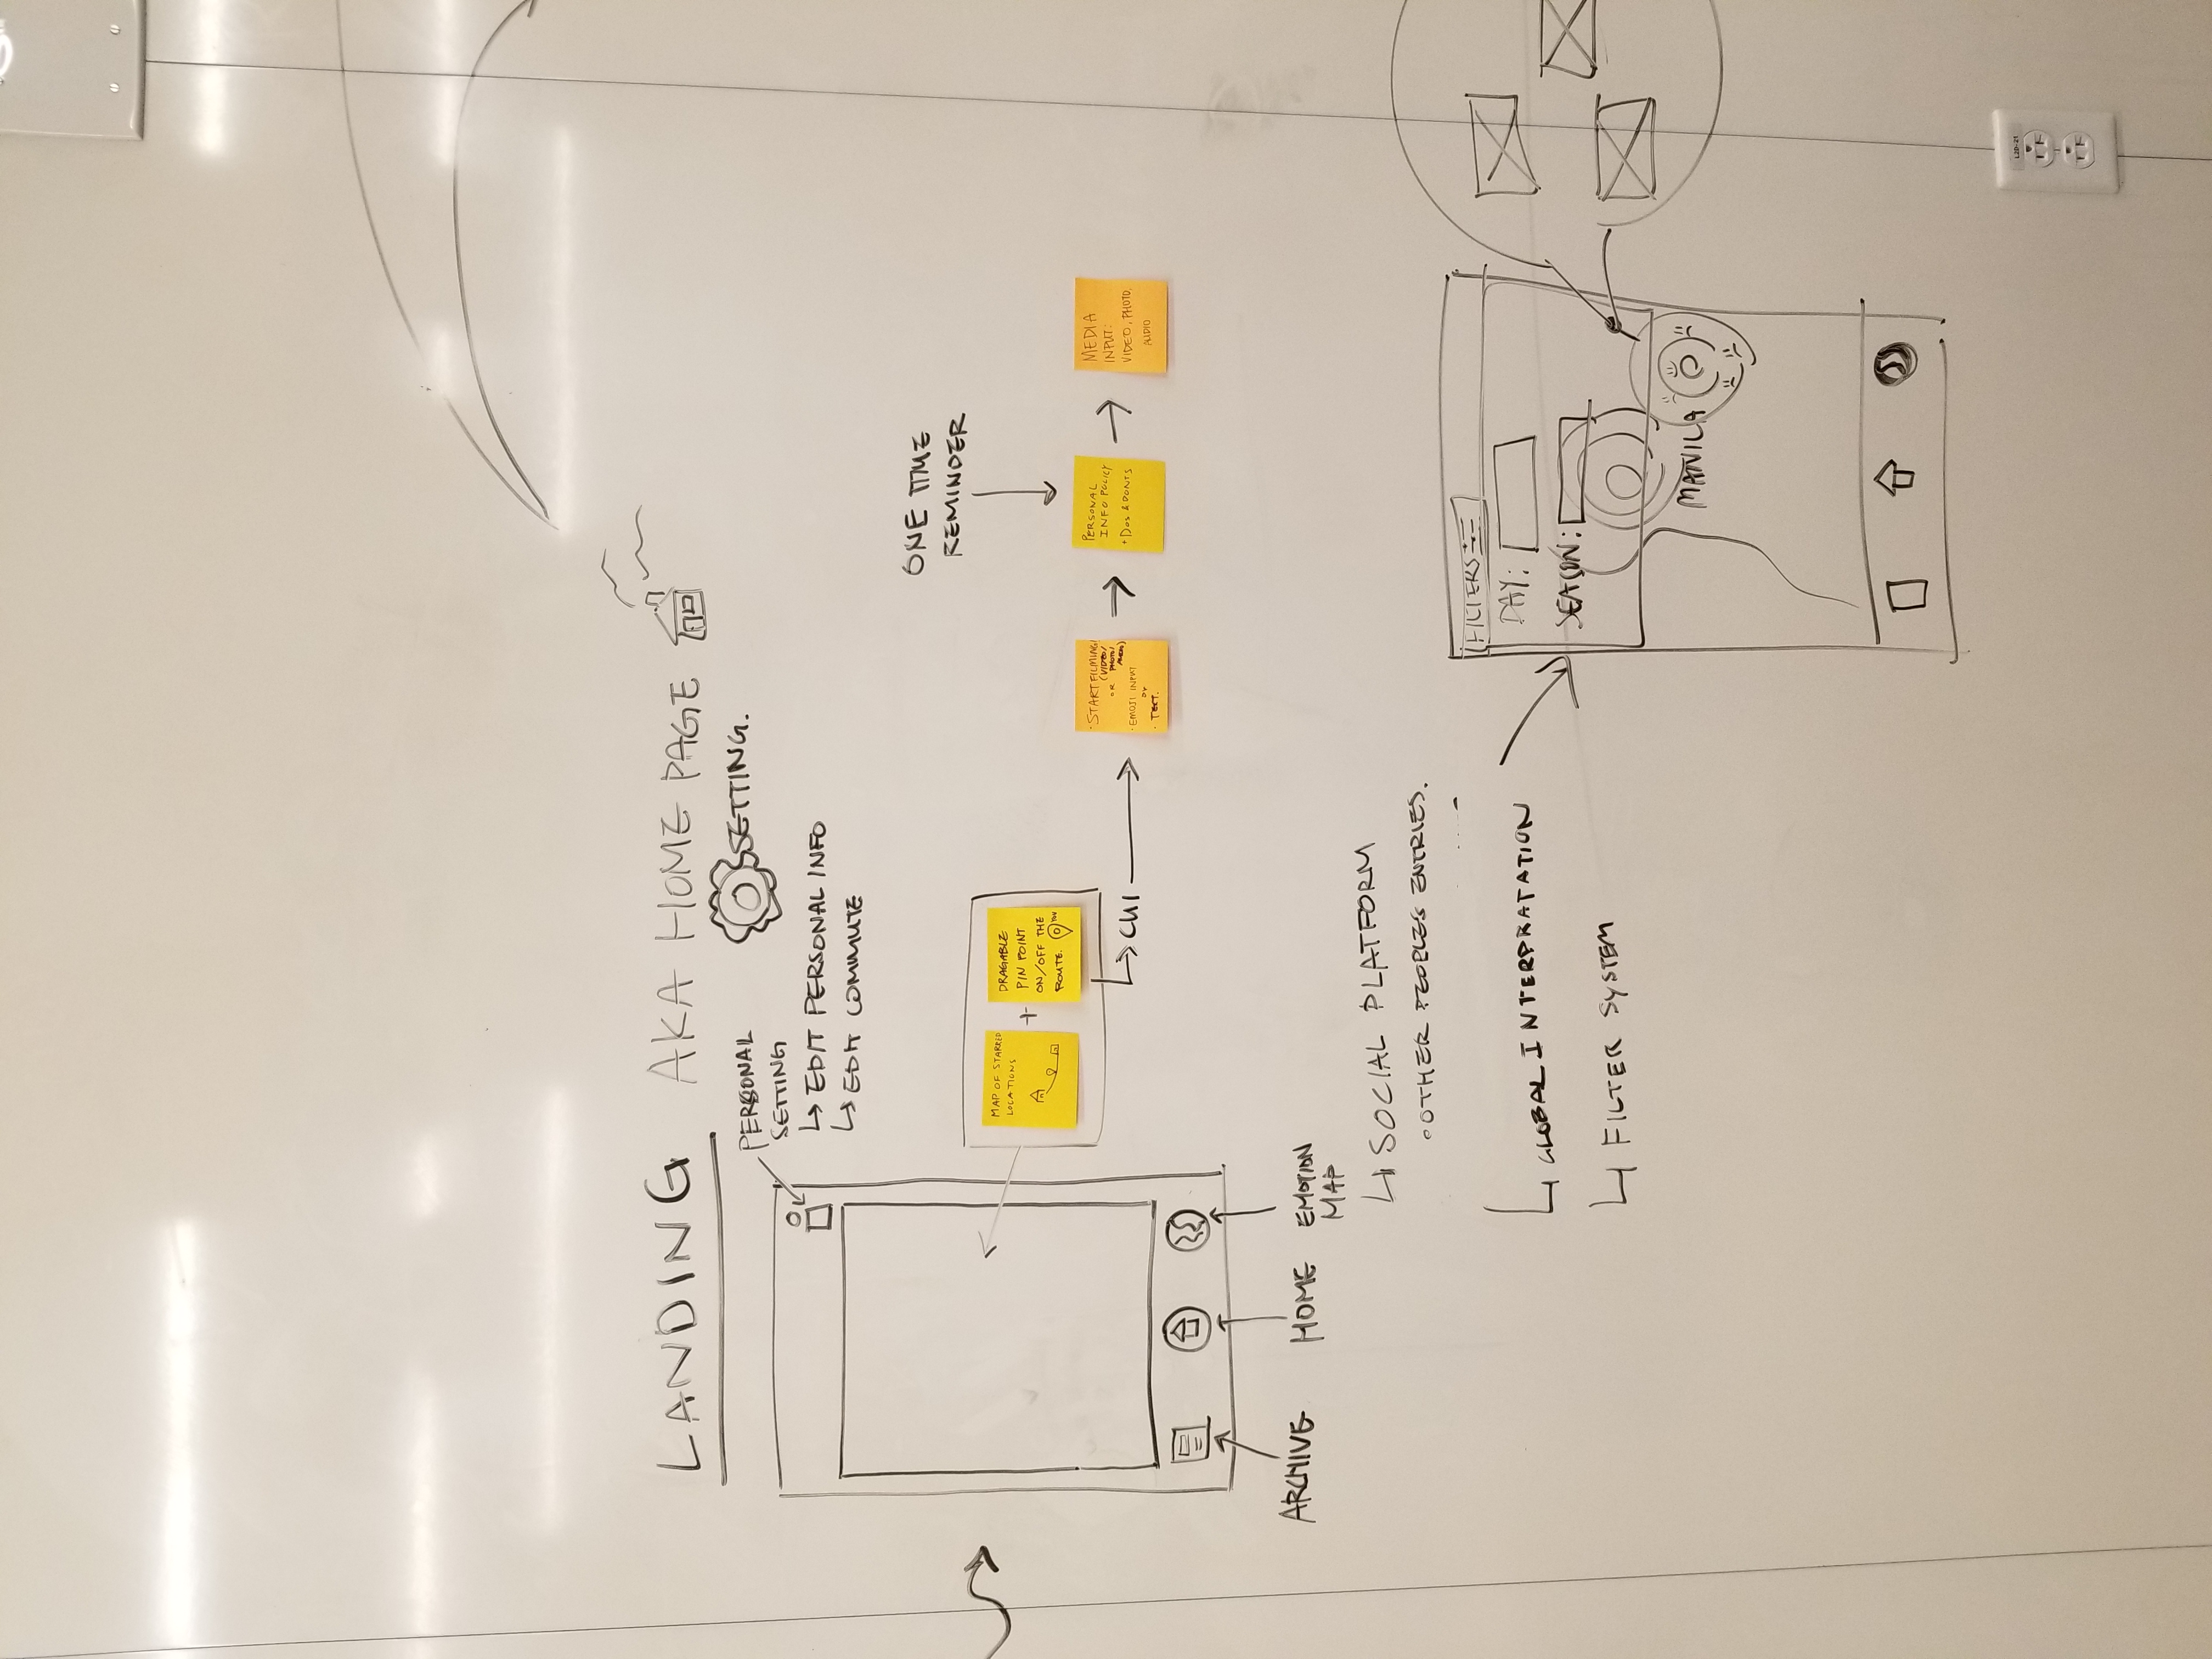 LANDING AKA HOME PAGE
SETTING.
PERSONAL
SETTING
EDIT PERSONAL INFO
EDIT COMMUTE
ONE TIME
REMINDER
MAP OF STARRED
LOCATIONS
+
DRAGABLE
PIN POINT
ON/OFF THE
ROUTE.
YOU
CUI
· START FILMING
(VIDEO/
OR PHOTO/
AUDIO)
· EMOJI INPUT
or
· TEXT.
PERSONAL
INFO POLICY
+ DOs & DONTS
MEDIA
INPUT:
VIDEO, PHOTO,
AUDIO
ARCHIVE
HOME
EMOTION
MAP
SOCIAL PLATFORM
OTHER PEOPLE'S ENTRIES.
GLOBAL INTERPRATATION
FILTER SYSTEM
FILTERS
DAY:
SEASON:
MANILA
L2D-21